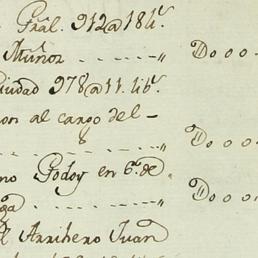 Gral. 912@18 lis.
Muñoz - - - - - " Do o o -
Ciudad 978@11. libs.
on al cargo del -
8 - - - - " Do o o
no Godoy en 6. de
ga - - - - " Do o o
el Arrihero Juan